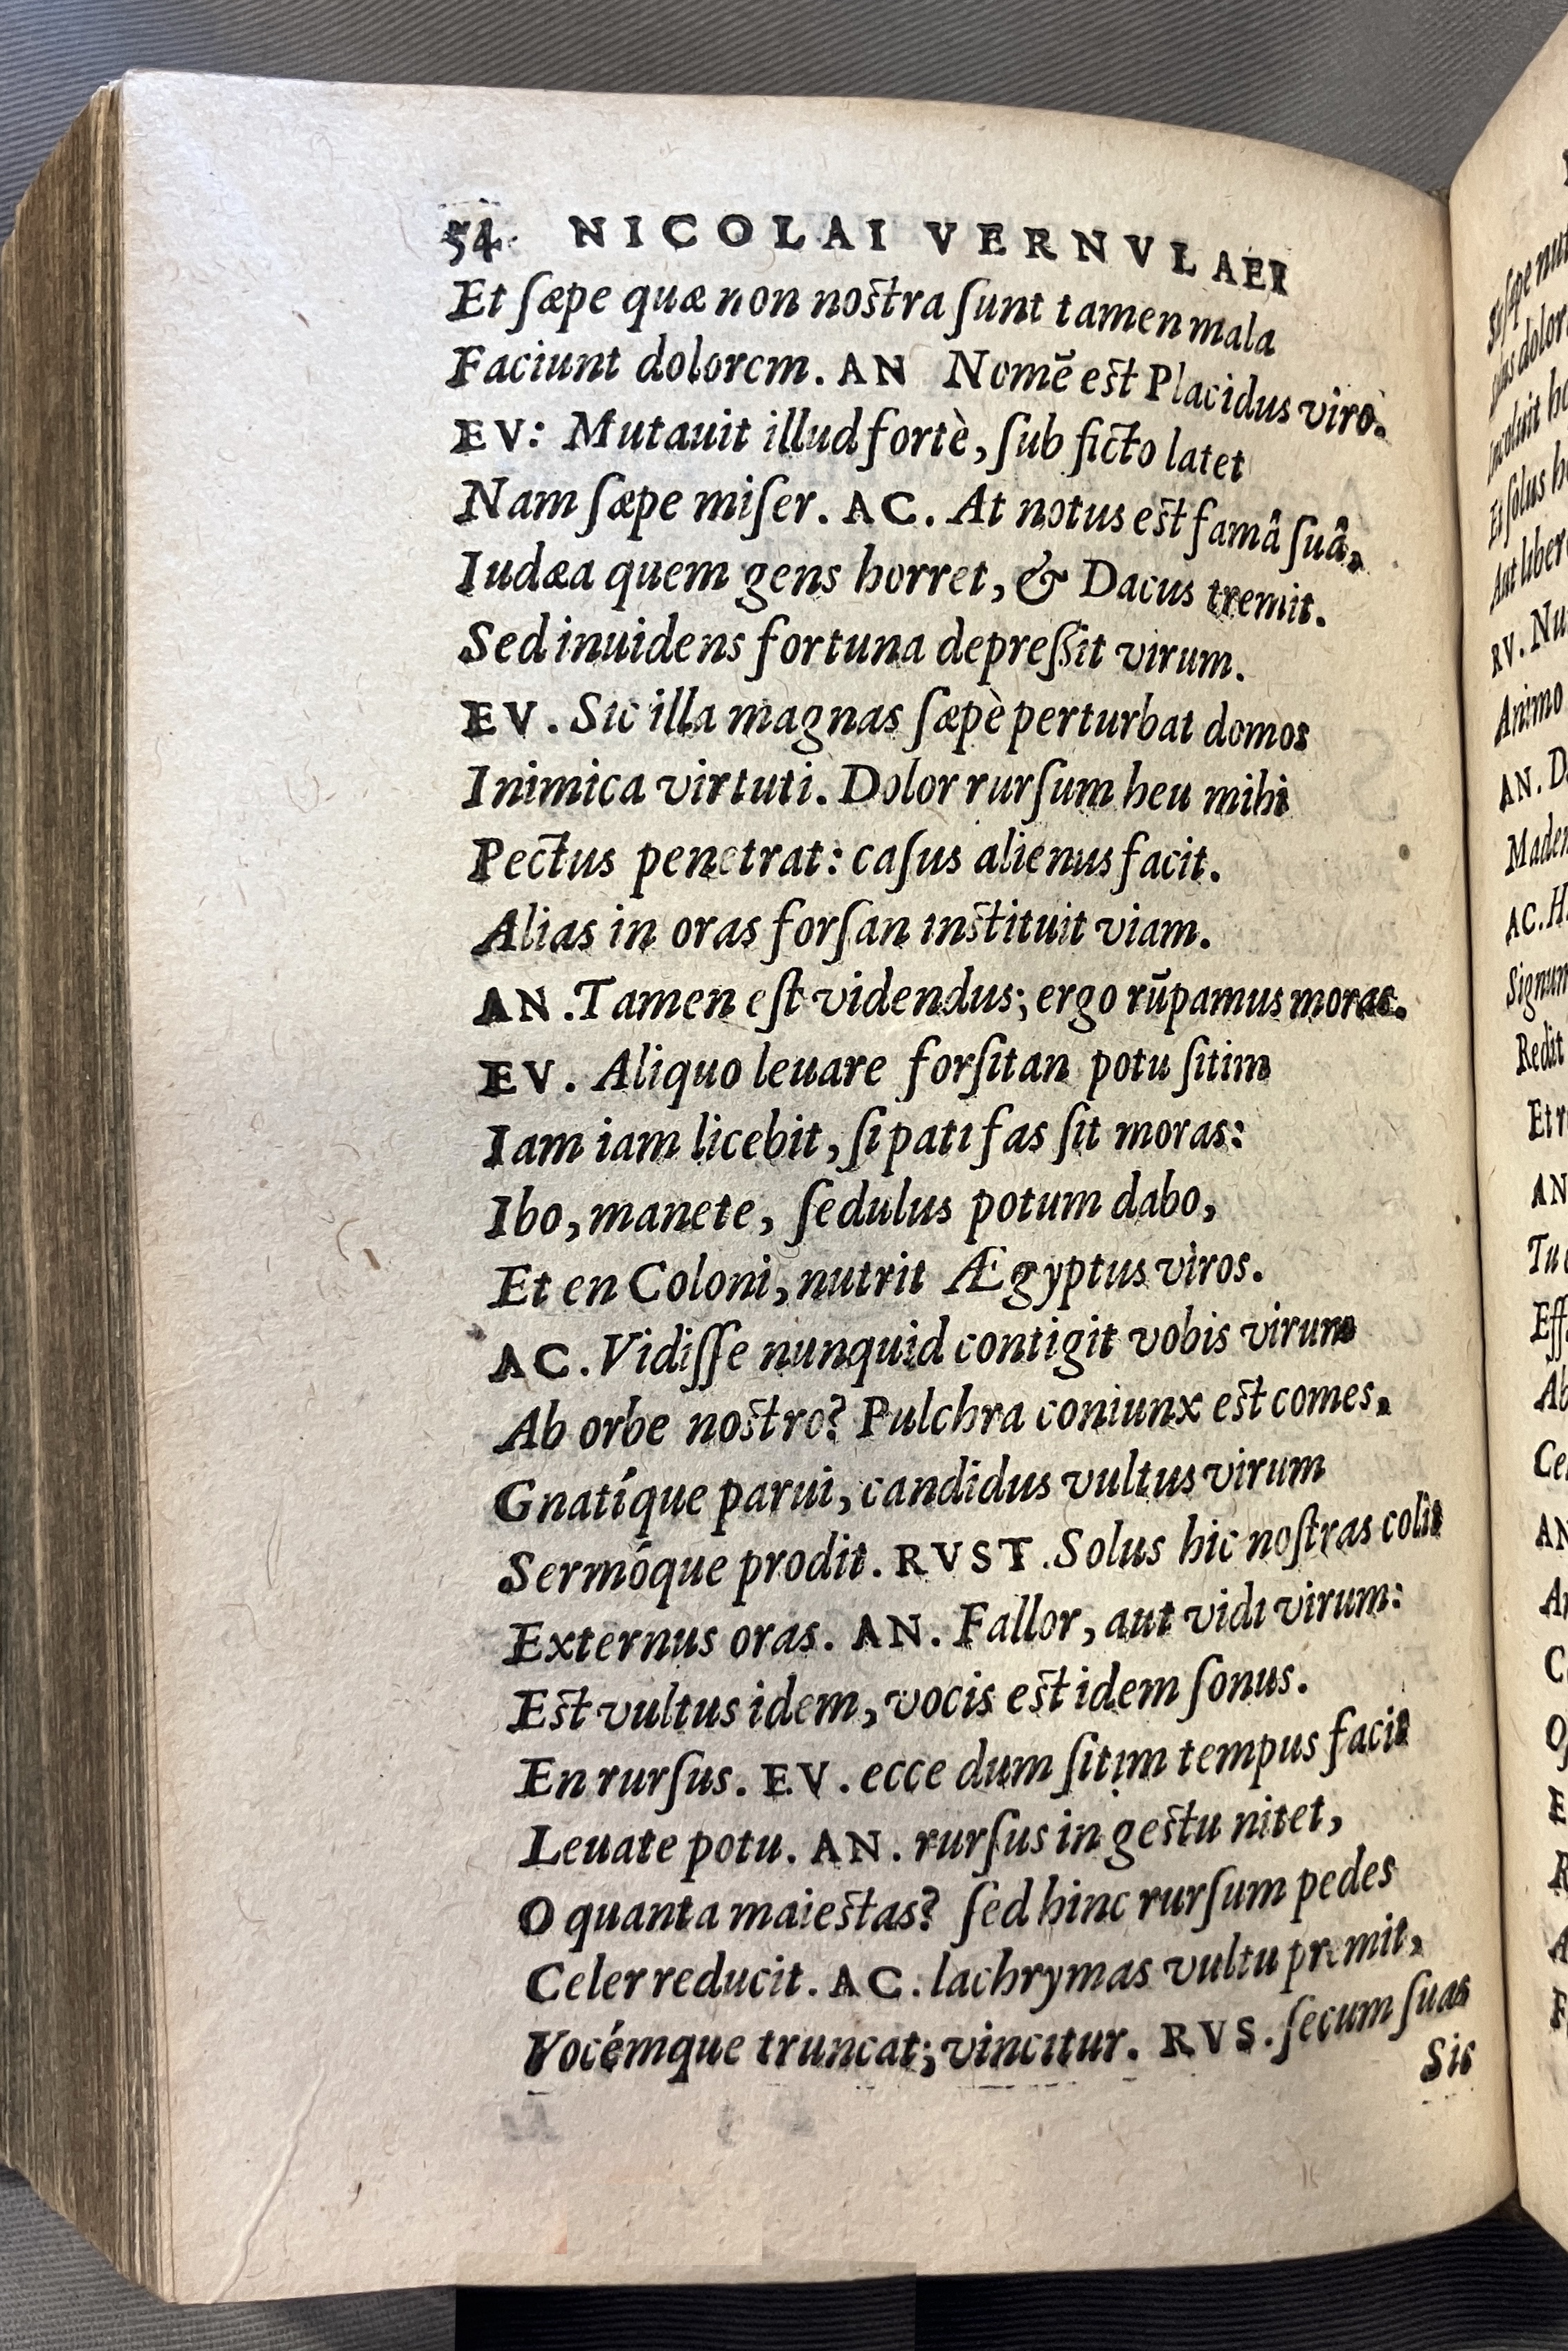 54. NICOLAI VERNVLAEI
Et ſæpe quæ non noſtra ſunt tamen mala
Faciunt dolorem. AN Nomē eſt Placidus viro.
EV: Mutauit illud fortè, ſub ficto latet
Nam ſæpe miſer. AC. At notus eſt famâ ſuâ,
Iudæa quem gens horret, & Dacus tremit.
Sed inuidens fortuna depreſſit virum.
EV. Sic illa magnas ſæpè perturbat domos
Inimica virtuti. Dolor rurſum heu mihi
Pectus penetrat: caſus alienus facit.
Alias in oras forſan inſtituit viam.
AN. Tamen eſt videndus; ergo rūpamus moras.
EV. Aliquo leuare forſitan potu ſitim
Iam iam licebit, ſi pati fas ſit moras:
Ibo, manete, ſedulus potum dabo,
Et en Coloni, nutrit Ægyptus viros.
AC. Vidiſſe nunquid contigit vobis virum
Ab orbe noſtro? Pulchra coniunx eſt comes,
Gnatíque parui, candidus vultus virum
Sermóque prodit. RVST. Solus hic noſtras colit
Externus oras. AN. Fallor, aut vidi virum:
Eſt vultus idem, vocis eſt idem ſonus.
En rurſus. EV. ecce dum ſitim tempus facit
Leuate potu. AN. rurſus in geſtu nitet,
O quanta maieſtas? ſed hinc rurſum pedes
Celer reducit. AC. lachrymas vultu premit,
Vocémque truncat; vincitur. RVS. ſecum ſuas
Sic